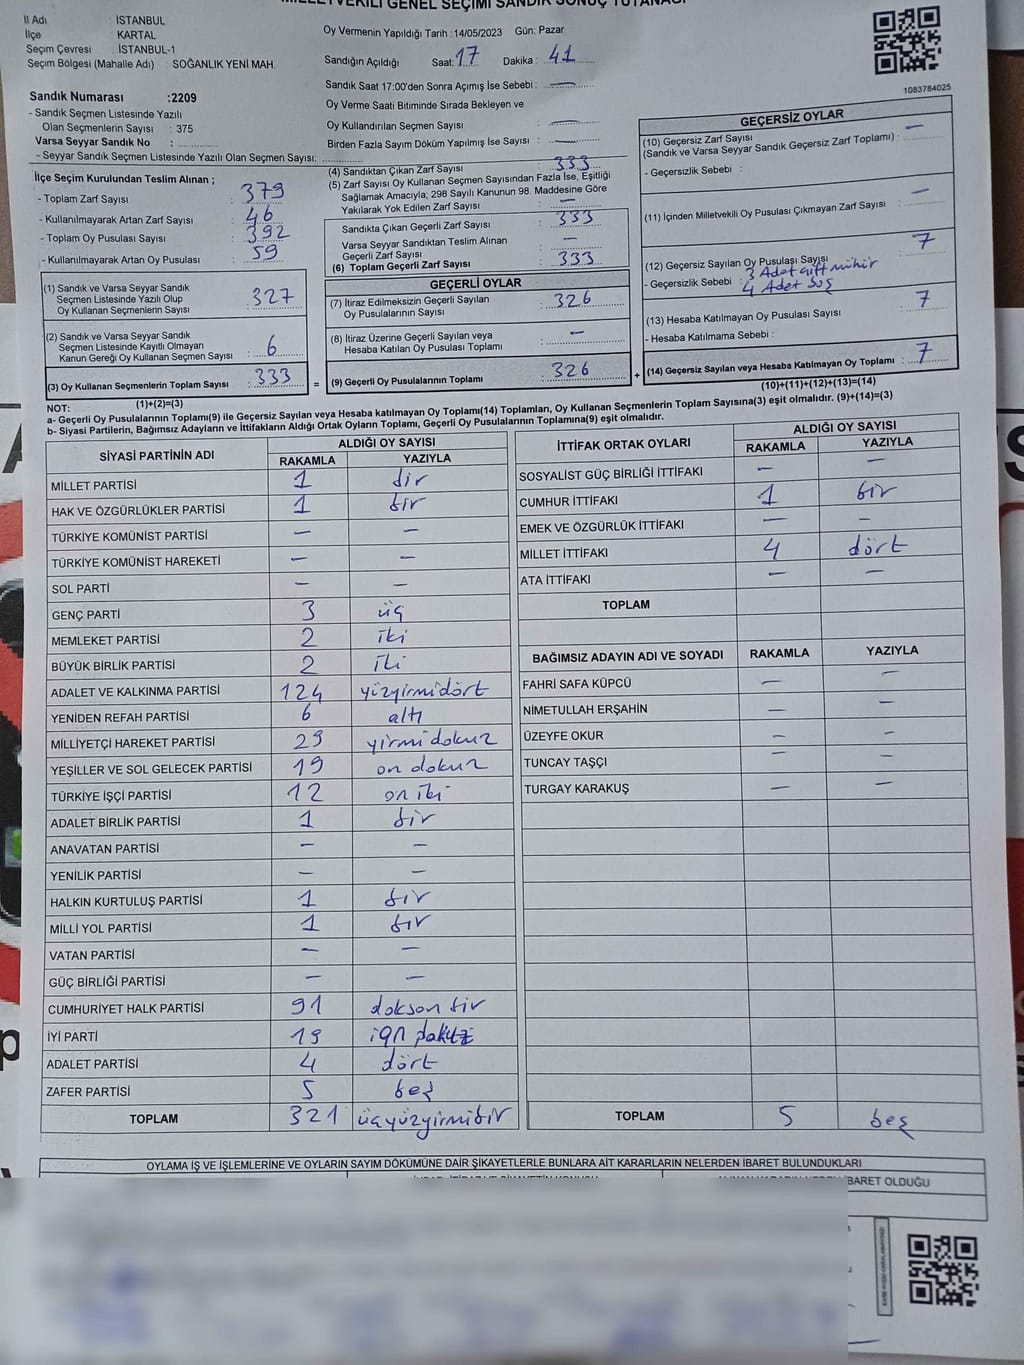 MİLLETVEKİLİ GENEL SEÇİMİ SANDIK SONUÇ TUTANAĞI
İl Adı : İSTANBUL
İlçe KARTAL
Seçim Çevresi : İSTANBUL-1
Seçim Bölgesi (Mahalle Adı) : SOĞANLIK YENİ MAH.
Sandık Numarası :2209
- Sandık Seçmen Listesinde Yazılı
Olan Seçmenlerin Sayısı : 375
Varsa Seyyar Sandık No :
- Seyyar Sandık Seçmen Listesinde Yazılı Olan Seçmen Sayısı:
Oy Vermenin Yapıldığı Tarih :14/05/2023 Gün: Pazar
Sandığın Açıldığı Saat: 17 Dakika : 41
Sandık Saat 17:00'den Sonra Açımış İse Sebebi : —
Oy Verme Saati Bitiminde Sırada Bekleyen ve
Oy Kullandırılan Seçmen Sayısı : —
Birden Fazla Sayım Döküm Yapılmış İse Sayısı : —
1083784025
İlçe Seçim Kurulundan Teslim Alınan ;
- Toplam Zarf Sayısı : 379
- Kullanılmayarak Artan Zarf Sayısı : 46
- Toplam Oy Pusulası Sayısı : 392
- Kullanılmayarak Artan Oy Pusulası : 59
(1) Sandık ve Varsa Seyyar Sandık
Seçmen Listesinde Yazılı Olup
Oy Kullanan Seçmenlerin Sayısı : 327
(2) Sandık ve Varsa Seyyar Sandık
Seçmen Listesinde Kayıtlı Olmayan
Kanun Gereği Oy Kullanan Seçmen Sayısı : 6
(3) Oy Kullanan Seçmenlerin Toplam Sayısı : 333
(1)+(2)=(3)
(4) Sandıktan Çıkan Zarf Sayısı : 333
(5) Zarf Sayısı Oy Kullanan Seçmen Sayısından Fazla İse, Eşitliği
Sağlamak Amacıyla; 298 Sayılı Kanunun 98. Maddesine Göre
Yakılarak Yok Edilen Zarf Sayısı : —
Sandıkta Çıkan Geçerli Zarf Sayısı : 333
Varsa Seyyar Sandıktan Teslim Alınan
Geçerli Zarf Sayısı : —
(6) Toplam Geçerli Zarf Sayısı : 333
GEÇERLİ OYLAR
(7) İtiraz Edilmeksizin Geçerli Sayılan
Oy Pusulalarının Sayısı : 326
(8) İtiraz Üzerine Geçerli Sayılan veya
Hesaba Katılan Oy Pusulası Toplamı : —
= (9) Geçerli Oy Pusulalarının Toplamı : 326
GEÇERSİZ OYLAR
(10) Geçersiz Zarf Sayısı
(Sandık ve Varsa Seyyar Sandık Geçersiz Zarf Toplamı) : —
- Geçersizlik Sebebi :
(11) İçinden Milletvekili Oy Pusulası Çıkmayan Zarf Sayısı : —
(12) Geçersiz Sayılan Oy Pusulası Sayısı : 7
- Geçersizlik Sebebi : 3 Adet çift mühür
4 Adet boş
(13) Hesaba Katılmayan Oy Pusulası Sayısı : 7
- Hesaba Katılmama Sebebi :
+ (14) Geçersiz Sayılan veya Hesaba Katılmayan Oy Toplamı : 7
(10)+(11)+(12)+(13)=(14)
NOT:
a- Geçerli Oy Pusulalarının Toplamı(9) ile Geçersiz Sayılan veya Hesaba katılmayan Oy Toplamı(14) Toplamları, Oy Kullanan Seçmenlerin Toplam Sayısına(3) eşit olmalıdır. (9)+(14)=(3)
b- Siyasi Partilerin, Bağımsız Adayların ve İttifakların Aldığı Ortak Oyların Toplamı, Geçerli Oy Pusulalarının Toplamına(9) eşit olmalıdır.
SİYASİ PARTİNİN ADI ALDIĞI OY SAYISI
RAKAMLA YAZIYLA
MİLLET PARTİSİ 1 bir
HAK VE ÖZGÜRLÜKLER PARTİSİ 1 bir
TÜRKİYE KOMÜNİST PARTİSİ — —
TÜRKİYE KOMÜNİST HAREKETİ — —
SOL PARTİ — —
GENÇ PARTİ 3 üç
MEMLEKET PARTİSİ 2 iki
BÜYÜK BİRLİK PARTİSİ 2 iki
ADALET VE KALKINMA PARTİSİ 124 yüzyirmidört
YENİDEN REFAH PARTİSİ 6 altı
MİLLİYETÇİ HAREKET PARTİSİ 29 yirmi dokuz
YEŞİLLER VE SOL GELECEK PARTİSİ 19 on dokuz
TÜRKİYE İŞÇİ PARTİSİ 12 on iki
ADALET BİRLİK PARTİSİ 1 bir
ANAVATAN PARTİSİ — —
YENİLİK PARTİSİ — —
HALKIN KURTULUŞ PARTİSİ 1 bir
MİLLİ YOL PARTİSİ 1 bir
VATAN PARTİSİ — —
GÜÇ BİRLİĞİ PARTİSİ — —
CUMHURİYET HALK PARTİSİ 91 doksan bir
İYİ PARTİ 19
ADALET PARTİSİ 4 dört
ZAFER PARTİSİ 5 beş
TOPLAM 321 üçyüzyirmibir
İTTİFAK ORTAK OYLARI ALDIĞI OY SAYISI
RAKAMLA YAZIYLA
SOSYALİST GÜÇ BİRLİĞİ İTTİFAKI — —
CUMHUR İTTİFAKI 1 bir
EMEK VE ÖZGÜRLÜK İTTİFAKI — —
MİLLET İTTİFAKI 4 dört
ATA İTTİFAKI — —
TOPLAM
BAĞIMSIZ ADAYIN ADI VE SOYADI RAKAMLA YAZIYLA
FAHRİ SAFA KÜPCÜ — —
NİMETULLAH ERŞAHİN — —
ÜZEYFE OKUR — —
TUNCAY TAŞÇI — —
TURGAY KARAKUŞ — —
TOPLAM 5 beş
OYLAMA İŞ VE İŞLEMLERİNE VE OYLARIN SAYIM DÖKÜMÜNE DAİR ŞİKAYETLERLE BUNLARA AİT KARARLARIN NELERDEN İBARET BULUNDUKLARI
İBARET OLDUĞU